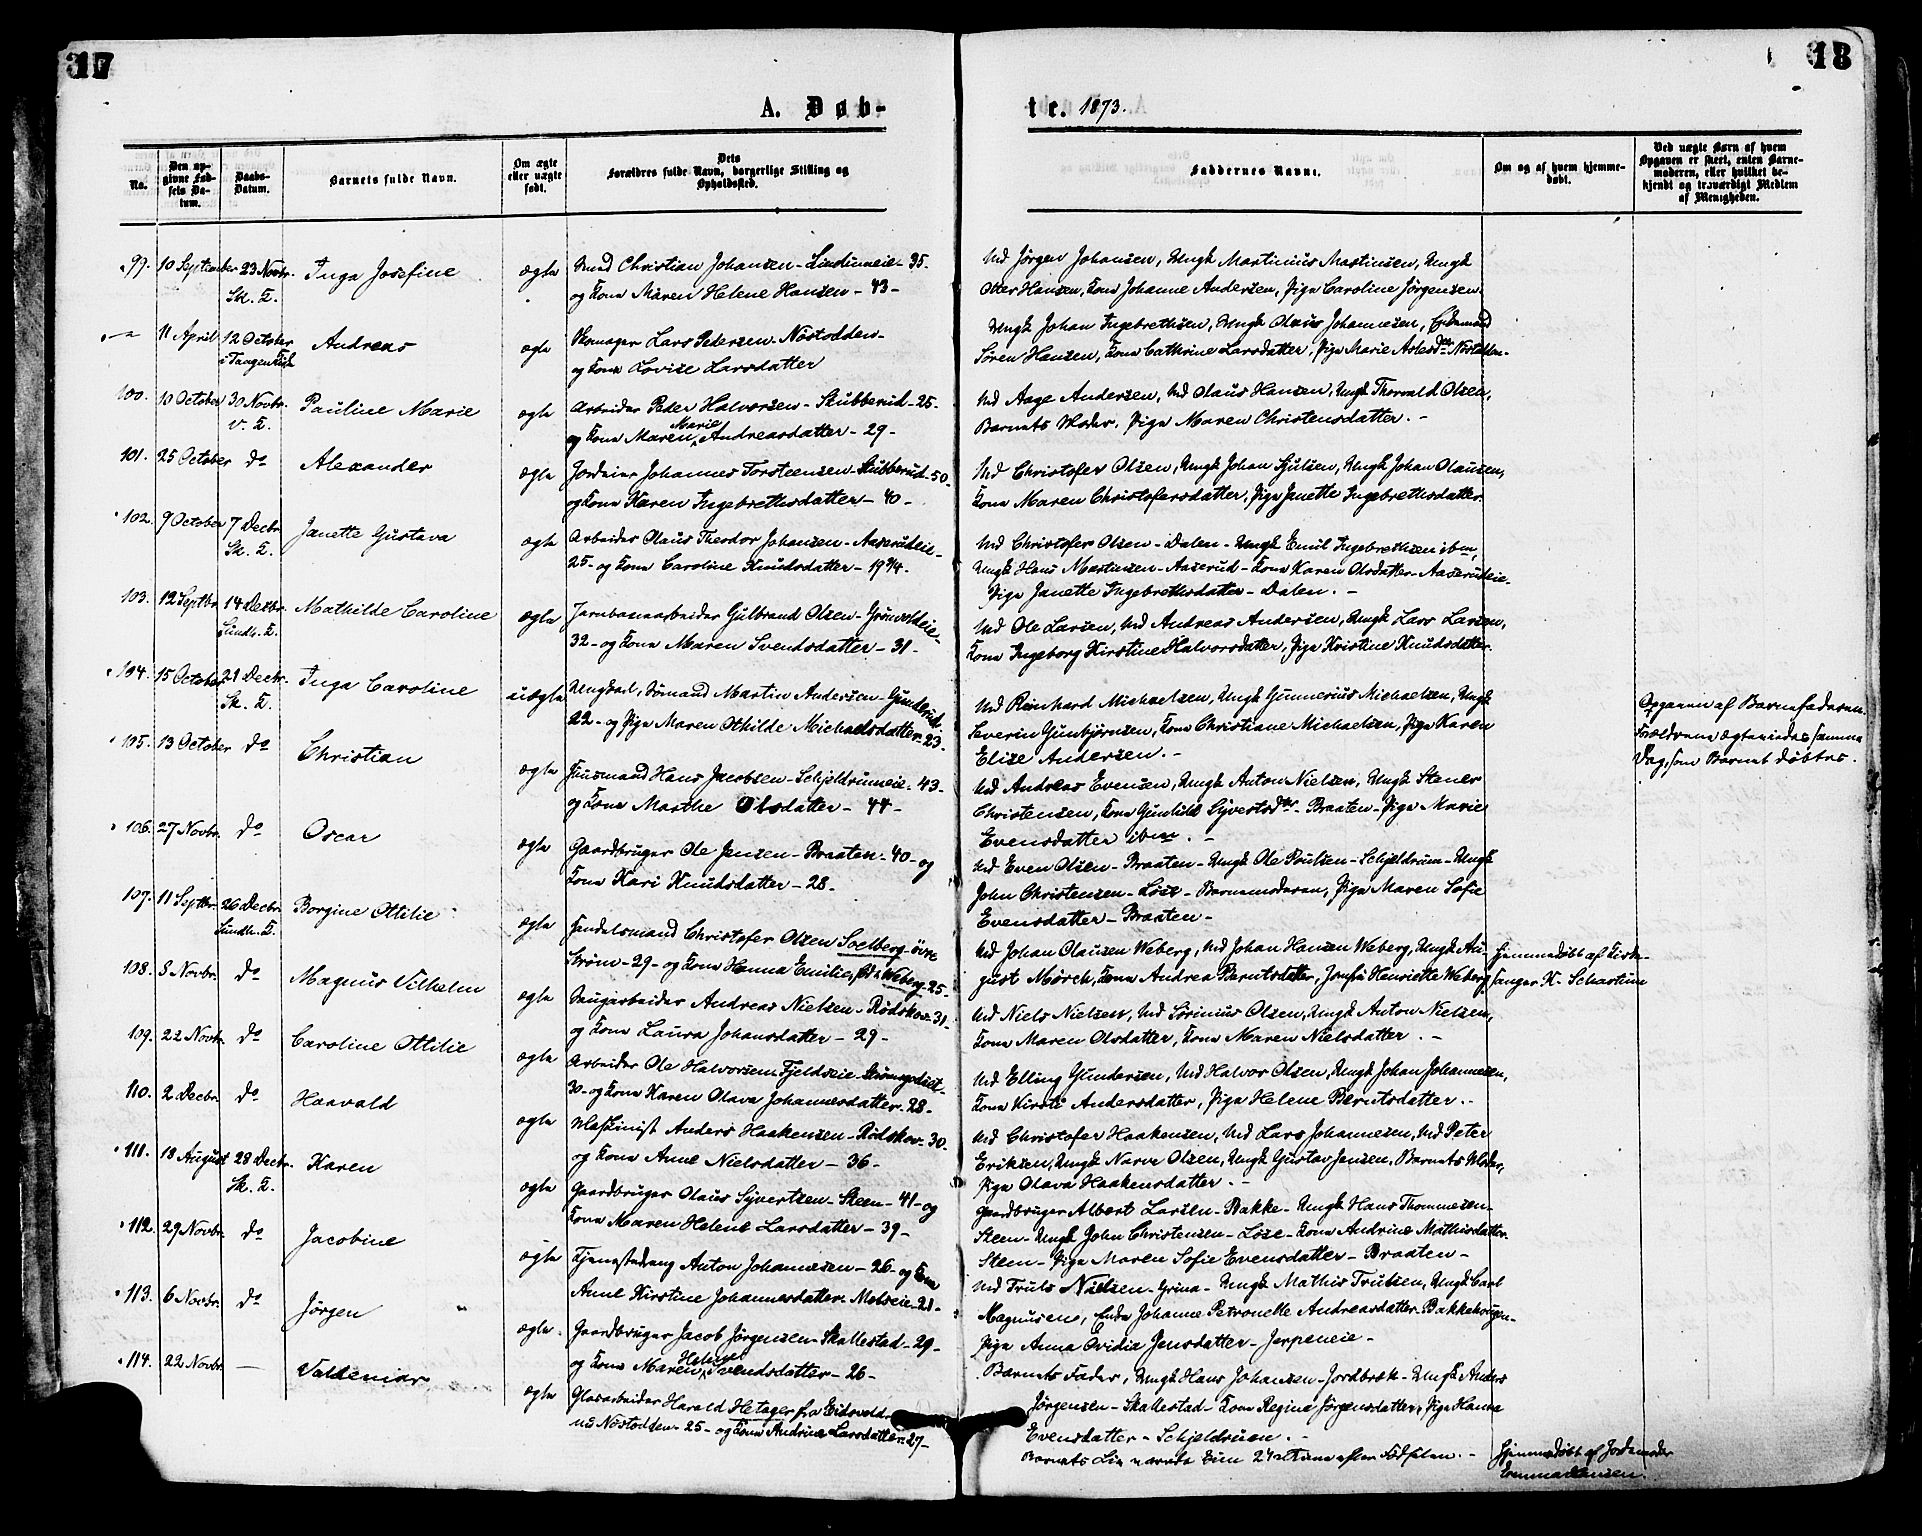 17
18
A. Døb-
te. 1873.
No.
Den op-
givne Fød-
sels Da-
tum.
Daabs-
Datum.
Barnets fulde Navn.
Om ægte
eller uægte
født.
Dets
Forældres fulde Navn, borgerlige Stilling og
Opholdssted.
Faddernes Navne.
Om og af hvem hjemme-
døbt.
Ved uægte Børn af hvem
Opgaven er skeet, enten Barne-
moderen, eller hvilket be-
kjendt og troværdigt Medlem
af Menigheden.
99. 10 September 23 Novbr. Inga Josefine ægte Christian Johansen - 35 -
Sk. K. og Kone Maren Helene Hansen - 43 -
Md Jørgen Johansen, Ungk Martinius Martinsen, Ungk
Otter Hansen, Kone Johanne Andersen, Pige Caroline Jørgensen.
11 April 12 October Andreas ægte Skomager Lars Pedersen - Nøstodden -
i Tangen Kirke og Kone Lovise Larsdatter
Ungk Johan Ingebrethsen, Ungk Olaus Johannesen, Enkemand
Søren Hansen, Kone Cathrine Larsdatter, Pige Marie Aslesdtr Nøstodden -
100. 10 October 30 Novbr. Pauline Marie ægte Arbeider Peder Halvorsen - Stubberud - 25 -
V. K. og Kone Maren Marie Andreasdatter - 29 -
Md Aage Andersen, Md Olaus Hansen, Ungk Thorvald Olsen,
Barnets Moder, Pige Maren Christensdatter. -
101. 25 October do Alexander ægte Jordeier Johannes Torsteensen - Stubberud - 50 -
og Kone Karen Ingebrethsdatter - 40 -
Md Christofer Olsen, Ungk Johan Sjulsen, Ungk Johan Olausen,
Kone Maren Christofersdatter, Pige Janette Ingebrethsdatter.
102. 9 October 7 Decbr Janette Gustava ægte Arbeider Olaus Theodor Johansen - Aaserudeie -
Sk. K. 25 - og Kone Caroline Knudsdatter - 19 3/4.
Md Christofer Olsen - Dalen - Ungk Emil Ingebrethsen ibm,
Ungk Hans Martinsen - Aaserud - Kone Karen Olsdatter - Aaserudeie -
Pige Janette Ingebrethsdatter - Dalen. -
103. 12 Septbr 14 Decbr. Mathilde Caroline ægte Jernbanearbeider Gulbrand Olsen - Grønvoldeie -
Sundh. K. 32 - og Kone Maren Svendsdatter - 31 -
Md Ole Larsen, Md Andreas Andersen, Ungk Lars Larsen,
Kone Ingeborg Kirstine Halvorsdatter, Pige Kristine Knudsdatter.
104. 15 October 21 Decbr. Inga Caroline uægte Ungkarl, Sømand Martin Andersen - Gunderud -
Sk. K. 22 - og Pige Maren Othilde Michaelsdatter - 23 -
Md Reinhard Michaelsen, Ungk Gunnerius Michaelsen, Ungk
Severin Gunbjørnsen, Kone Christiane Michaelsen, Pige Karen
Elise Andersen. -
Opgaven af Barnefaderen.
Forældrene ægteviedes samme
Dag, som Barnet døbtes.
105. 13 October do Christian ægte Huusmand Hans Jacobsen - Schjeldrumeie - 43 -
og Kone Marthe Olsdatter - 44 -
Md Andreas Evensen, Ungk Anton Nielsen, Ungk Stener
Christensen, Kone Gunhild Syvertsdtr - Braaten - Pige Marie
Evensdatter ibm. -
106. 27 Novbr. do Oscar ægte Gaardbruger Ole Jensen - Braaten - 40 - og
Kone Kari Knudsdatter - 28 -
Md Even Olsen - Braaten - Ungk Ole Poulsen - Schjeldrum - Ungk
John Christensen - Løse - Barnemoderen, Pige Maren Sofie
Evensdatter - Braaten -
107. 11 Septbr. 26 Decbr. Borgine Ottilie ægte Handelsmand Christofer Olsen Soelberg - övre
Sundh. K. Strøm - 29 - og Kone Hanna Emilie, født Weberg - 25 -
Md Johan Olausen Weberg, Md Johan Hansen Weberg, Ungk Au-
gust Mørch, Kone Andrea Berntsdatter, Jomfru Henriette Weberg.
Hjemmedøbt af Kirke-
sanger K. Schartum
108. 8 Novbr. do Magnus Vilhelm ægte Saugarbeider Andreas Nielsen - Rødskov - 31 -
og Kone Laura Johansdatter - 29 -
Md Niels Nielsen, Md Sørinus Olsen, Ungk Anton Nielsen,
Kone Maren Olsdatter, Kone Maren Nielsdatter. -
109. 22 Novbr. do Caroline Ottilie ægte Arbeider Ole Halvorsen Fjeldseie
30 - og Kone Karen Olava Johannesdatter - 28 -
Md Elling Gundersen, Md Halvor Olsen, Ungk Johan Johannesen,
Kone Kirsti Andersdatter, Pige Helene Berntsdatter. -
110. 2 Decbr. do Haavald ægte Maskinist Anders Haakensen - Rødskov - 30 -
og Kone Anne Nielsdatter - 36 -
Md Christofer Haakensen, Md Lars Johannesen, Md Peter
Eriksen, Ungk Narve Olsen, Ungk Gustav Jensen, Barnets Moder,
Pige Olava Haakensdatter. -
111. 18 August 28 Decbr. Karen ægte Gaardbruger Olaus Syvertsen - Steen - 41 - og
Sk. K. Kone Maren Helene Larsdatter - 39 -
Gaardbruger Albert Larsen - Bakke - Ungk Hans Thommesen -
Steen - Ungk John Christensen - Løse - Kone Andrine Mathisdatter -
Steen - Pige Maren Sofie Evensdatter - Braaten -
112. 29 Novbr. do Jacobine ægte Tjenestedreng Anton Johannesen - 26 - og Kone
Anne Kirstine Johannesdatter - 21 -
Md Truls Nielsen - Grina - Ungk Mathis Trulsen, Ungk Carl
Magnusen, Enke Johanne Petronelle Andreasdatter - Bakkehougen -
Pige Anna Ovidia Jensdatter - Jerpeneie -
113. 6 Novbr. do Jørgen ægte Gaardbruger Jacob Jørgensen - Skallestad - 29 -
og Kone Maren Helene Svendsdatter - 26 -
Barnets Fader, Ungk Hans Johansen - Jordbræk - Ungk Anders
Jørgensen - Skallestad - Kone Regine Jørgensdatter, Pige Hanna
Evensdatter - Schjeldruen. -
114. 22 Novbr. — Valdemar ægte Glasarbeider Harald Hetager fra Eidsvold
nu Nøstodden - 25 - og Kone Andrine Larsdatter - 27 -
Barnets Liv varede kun 24 Timer efter Fødselen. -
Hjemmedøbt af Jordemoder
Emma Hansen.